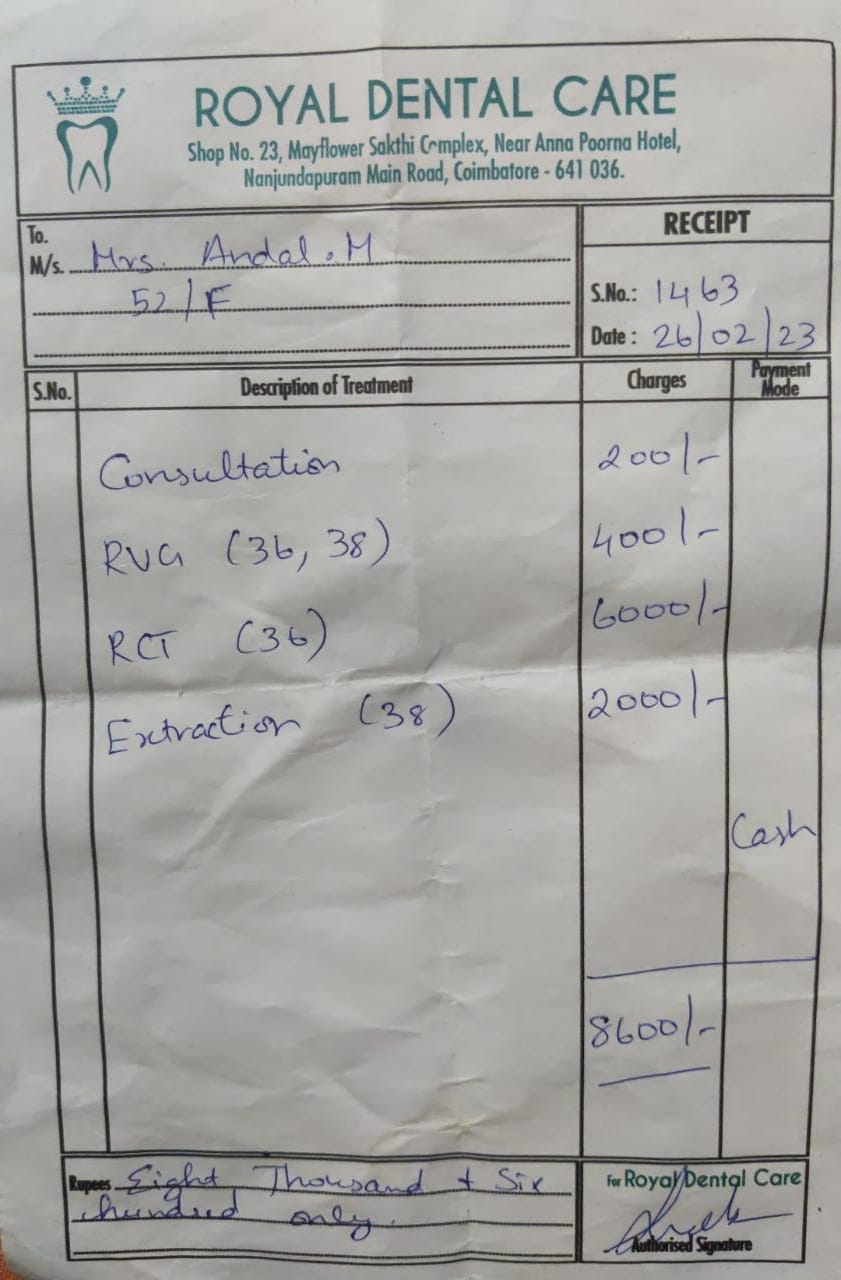 ROYAL DENTAL CARE
Shop No. 23, Mayflower Sakthi Complex, Near Anna Poorna Hotel,
Nanjundapuram Main Road, Coimbatore - 641 036.
To.
M/s. Mrs. Andal. M
52/F
RECEIPT
S.No.: 1463
Date : 26/02/23
S.No. Description of Treatment Charges Payment Mode
Consultation 200/-
RVG (36, 38) 400/-
RCT (36) 6000/-
Extraction (38) 2000/-
Cash
8600/-
Rupees Eight Thousand + Six
hundred only.
For Royal Dental Care
Authorised Signature